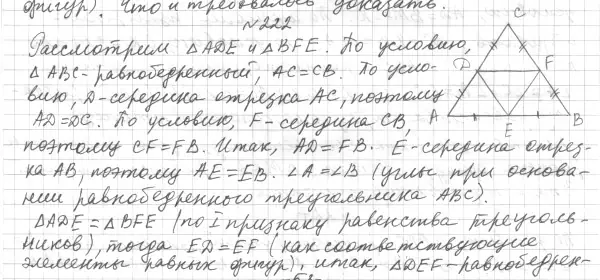 фигур). Что и требовалось доказать.
№222
Рассмотрим △ADE и △BFE. По условию,
△ABC - равнобедренный, AC=CB. По усло-
вию, D-середина отрезка AC, поэтому
AD=DC. По условию, F-середина CB,
поэтому CF=FB. Итак, AD=FB. E-середина отрез-
ка AB, поэтому AE=EB. ∠A=∠B (углы при основа-
нии равнобедренного треугольника ABC).
△ADE=△BFE (по I признаку равенства треуголь-
ников), тогда ED=EF (как соответствующие
элементы равных фигур), итак, △DEF-равнобедрен-
C
D
F
A
E
B